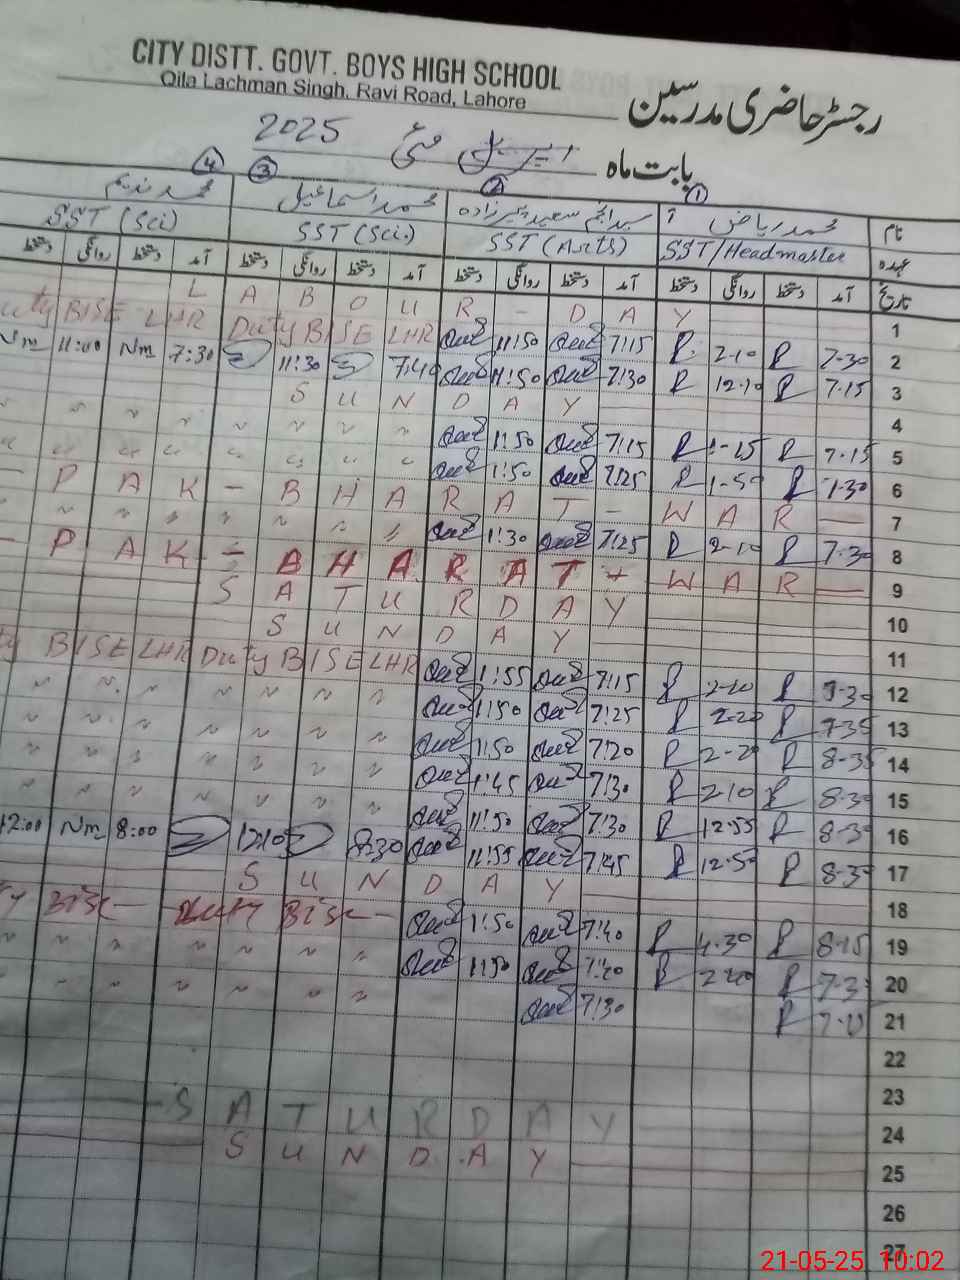 CITY DISTT. GOVT. BOYS HIGH SCHOOL
Qila Lachman Singh, Ravi Road, Lahore
رجسٹر حاضری مدرسین
بابت ماہ اپریل مئی 2025
① ② ③ ④
نام محمد ریاض سید انجم سعید پیرزادہ محمد اسماعیل محمد ندیم
عہدہ SST/Headmaster SST (Arts) SST (Sci.) SST (Sci)
تاریخ آمد دستخط روانگی دستخط آمد دستخط روانگی دستخط آمد دستخط روانگی دستخط آمد دستخط روانگی دستخط
L A B O U R - D A Y 1
Duty BISE LHR Duty BISE LHR 11:50 7:15 R 2-10 R 7-30 2
Nm 11:00 Nm 7:30 11:30 7:40 11:50 7:30 R 12-10 R 7-15 3
S U N D A Y 4
1:50 7:15 R 1-15 R 7-15 5
1:50 7:25 R 1-50 R 7-30 6
P A K - B H A R A T - W A R 7
1:30 7:25 R 2-10 R 7-30 8
P A K - B H A R A T - W A R 9
S A T U R D A Y 10
S U N D A Y 11
BISE LHR Duty BISE LHR 1:55 7:15 R 2-10 R 7-30 12
1:50 7:25 R 2-20 R 7-35 13
1:50 7:20 R 2-20 R 8-35 14
1:45 7:30 R 2-10 R 8-30 15
11:50 7:30 R 12-55 R 8-30 16
12:00 Nm 8:00 12:10 8:30 11:55 7:45 R 12-50 R 8-30 17
S U N D A Y 18
BISE Duty BISE 1:50 7:40 R 4-30 R 8-15 19
11:50 7:20 R 2-20 R 7-3 20
7:30 R 21
22
23
S A T U R D A Y 24
S U N D A Y 25
26
27
21-05-25 10:02